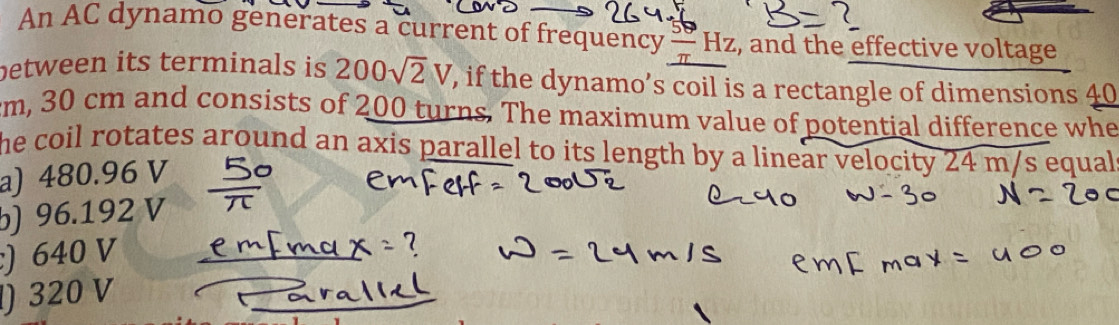 ConS → 264.6 B = ?
An AC dynamo generates a current of frequency 50/π Hz, and the effective voltage
between its terminals is 200√2 V, if the dynamo's coil is a rectangle of dimensions 40
cm, 30 cm and consists of 200 turns, The maximum value of potential difference whe
he coil rotates around an axis parallel to its length by a linear velocity 24 m/s equal
a) 480.96 V 50/π emF eff = 200√2
b) 96.192 V 40 w = 30 N = 200
c) 640 V emF max = ? ω = 24 m/s emF max = 400
d) 320 V Parallel